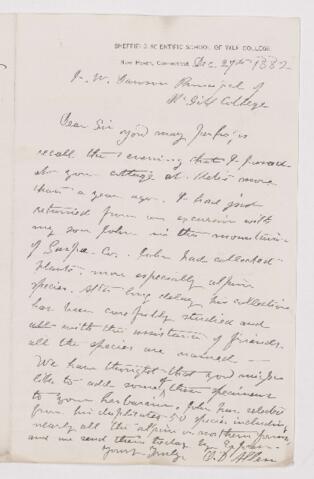 SHEFFIELD SCIENTIFIC SCHOOL OF YALE COLLEGE.
New Haven, Connecticut, Dec. 27th 1882
J. W. Dawson Principal of
McGill College
Dear Sir You may perhaps
recall the evening that I passed
at your cottage at Metis more
than a year ago. I had just
returned from an excursion with
my son John in the mountains
of Gaspe Co. John had collected
plants, more especially alpine
species. After long delay his collection
has been carefully studied and
with the assistance of friends
all the species are named —
We have thought that you might
like to add some of these specimens
to your herbarium. John has selected
from his duplicates 50 species including
nearly all the alpine or northern forms
and we send them today by Express
Yours truly O. D. Allen